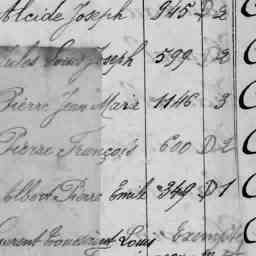 Alcide Joseph 945 D 2
Jules Louis Joseph 599 D 2
Pierre Jean Marie 1146 3
Pierre François 600 D 2
Albert Pierre Emile 349 D 1
Laurent Louis Exempté